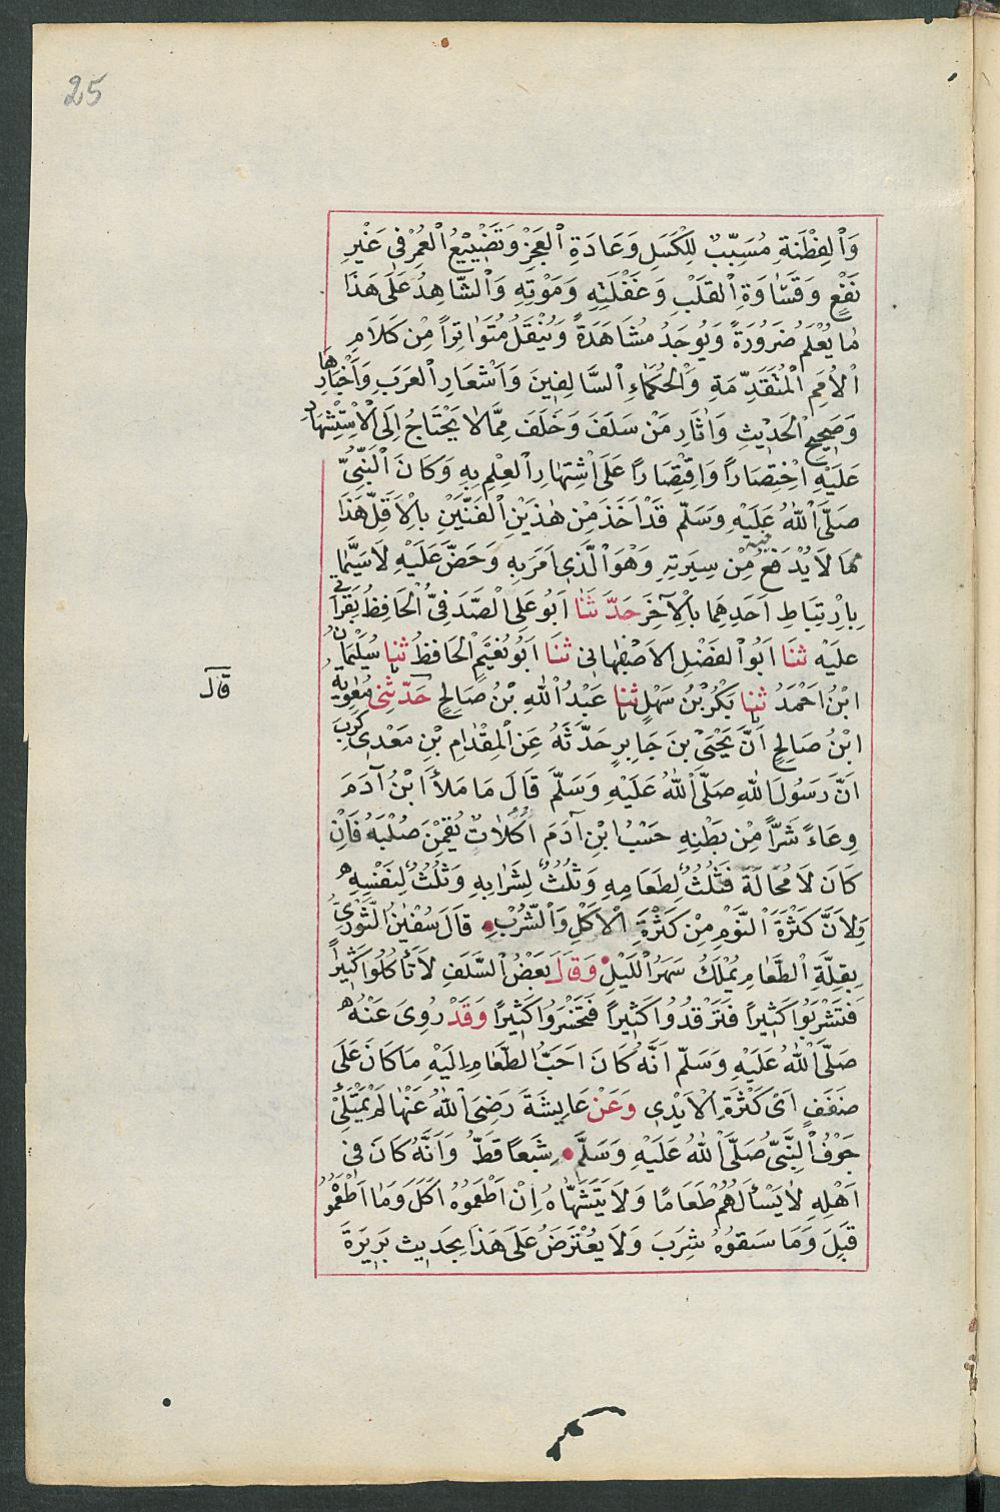 25
وَالْفِطْنَةِ مُسَبِّبٌ لِلْكَسَلِ وَعَادَةِ الْعَجْزِ وَتَضْيِيْعُ الْعُمْرِ فِى غَيْرِ
نَفْعٍ وَقَسَاوَةِ الْقَلْبِ وَغَفْلَتِهِ وَمَوْتِهِ وَالشَّاهِدُ عَلَى هَذَا
مَا يُعْلَمُ ضَرُورَةً وَيُوجَدُ مُشَاهَدَةً وَيُنْقَلُ مُتَوَاتِراً مِنْ كَلَامِ
الْأُمَمِ الْمُتَقَدِّمَةِ وَالْحُكَمَاءِ السَّالِفِينَ وَاَشْعَارِ الْعَرَبِ وَاَخْبَارِهَا
وَصَحِيحِ الْحَدِيْثِ وَاٰثَارِ مَنْ سَلَفَ وَخَلَفَ مِمَّا لَا يَحْتَاجُ اِلَى الْاِسْتِشْهَادِ
عَلَيْهِ اخْتِصَاراً وَاقْتِصَاراً عَلَى اشْتِهَارِ الْعِلْمِ بِهِ وَكَانَ النَّبِىُّ
صَلَّى اللّٰهُ عَلَيْهِ وَسَلَّم قَدْ اَخَذَ مِنْ هٰذَيْنِ الْفَنَّيْنِ بِالْاَقَلِّ هَذَا
مَا لَا يُدْفَعُ مِنْ سِيرَتِهِ وَهُوَ الَّذِى اَمَرَ بِهِ وَحَضَّ عَلَيْهِ لَا سَيَّمَا
بِارْتِبَاطِ اَحَدِهِمَا بِالْآخِرَ حَدَّثَنَا اَبُو عَلِى الصَّدَفِىُّ الْحَافِظُ بِقِرَأَتِى
عَلَيْهِ ثنَا اَبُو الْفَضْلِ الْاَصْفِهَانِى ثنَا اَبُو نُعَيْمِ الْحَافِظُ ثنا سُلَيْمَانُ
ابْنُ اَحْمَدَ ثنا بَكْرُ بْنُ سَهْلٍ ثنا عَبْدُ اللّٰهِ بْنُ صَالِحٍ حَدَّثَنِى مُعٰوِيَةُ
ابْنُ صَالِحٍ اَنَّ يَحْيَىْ بنَ جَابِرٍ حَدَّثَهُ عَنِ الْمِقْدَامِ بْنِ مَعْدِى كَرِبَ
قال
اَنَّ رَسُولَ اللّٰهِ صَلَّى اللّٰهُ عَلَيْهِ وَسَلَّمَ قَالَ مَا مَلَأَ ابْنُ آدَمَ
وِعَاءً شَرّاً مِنْ بَطْنِهِ حَسْبُ ابْنِ آدَمَ اُكُلَاتٌ يُقِمْنَ صُلْبَهُ فَاِنْ
كَانَ لَا مُحَالَةَ فَثُلُثٌ لِطَعَامِهِ وَثُلُثٌ لِشَرَابِهِ وَثُلُثٌ لِنَفَسِهِ
وَلِاَنَّ كَثْرَةَ النَّوْمِ مِنْ كَثْرَةِ الْاَكْلِ وَالشُّرْبِ قَالَ سُفْيٰنُ الثَّوْرِىُّ
بِقِلَّةِ الطَّعَامِ يُمْلَكُ سَهَرُ اللَّيْلِ وَقَالَ بَعْضُ السَّلَفِ لَا تَأكُلُوا كَثِيراً
فَتَشْرَبُوا كَثِيراً فَتَرْقُدُوا كَثِيراً فَتَخْسَرُوا كَثِيراً وَقَدْ رُوِىَ عَنْهُ
صَلَّى اللّٰهُ عَلَيْهِ وَسَلَّم اَنَّهُ كَانَ اَحَبُّ الطَّعَامِ اِلَيْهِ مَا كَانَ عَلَى
ضَفَفٍ اَىْ كَثْرَةِ الْاَيْدِى وَعَنْ عَايِشَةَ رَضِىَ اللّٰهُ عَنْهَا لَمْ يَمْتَلِئْ
جَوْفُ النَّبِىِّ صَلَّى اللّٰهُ عَلَيْهِ وَسَلَّمَ شِبَعاً قَطُّ وَاَنَّهُ كَانَ فِى
اَهْلِهِ لَا يَسْأَلُهُمْ طَعَامًا وَلَا يَتَشَهَّاهُ اِنْ اَطْعَمُوهُ اَكَلَ وَمَا اَطْعَمُوُ
قَبِلَ وَمَا سَقَوْهُ شِرَبَ وَلَا يُعْتَرَضُ عَلَى هَذَا بِحَدِيث بَرِيرَةَ